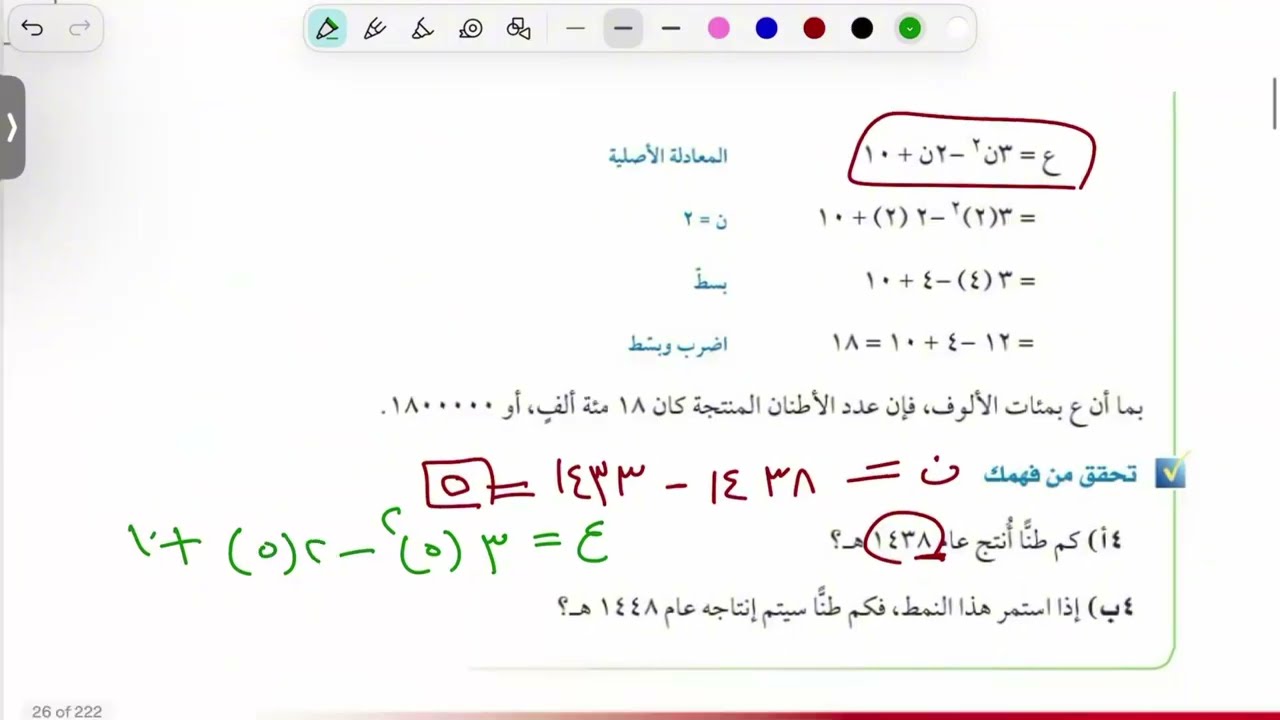 ع = ٣ن٢ – ٢ن + ١٠ المعادلة الأصلية
= ٣(٢)٢ – ٢ (٢) + ١٠ ن = ٢
= ٣ (٤) – ٤ + ١٠ بسطّ
= ١٢ – ٤ + ١٠ = ١٨ اضرب وبسّط
بما أن ع بمئات الألوف، فإن عدد الأطنان المنتجة كان ١٨ مئة ألفٍ، أو ١٨٠٠٠٠٠.
تحقق من فهمك ن = ١٤٣٨ - ١٤٣٣ = ٥
٤أ) كم طنًّا أُنتج عام ١٤٣٨ هـ؟
ع = ٣ (٥)٢ – ٢(٥) + ١٠
٤ب) إذا استمر هذا النمط، فكم طنًّا سيتم إنتاجه عام ١٤٤٨ هـ؟
26 of 222